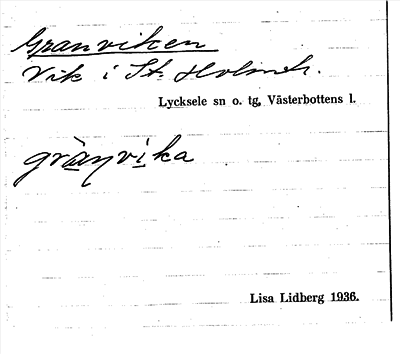 Granviken
Vik i St. Holmtr.
Lycksele sn o. tg, Västerbottens l.
grànvi̱ka
Lisa Lidberg 1936.